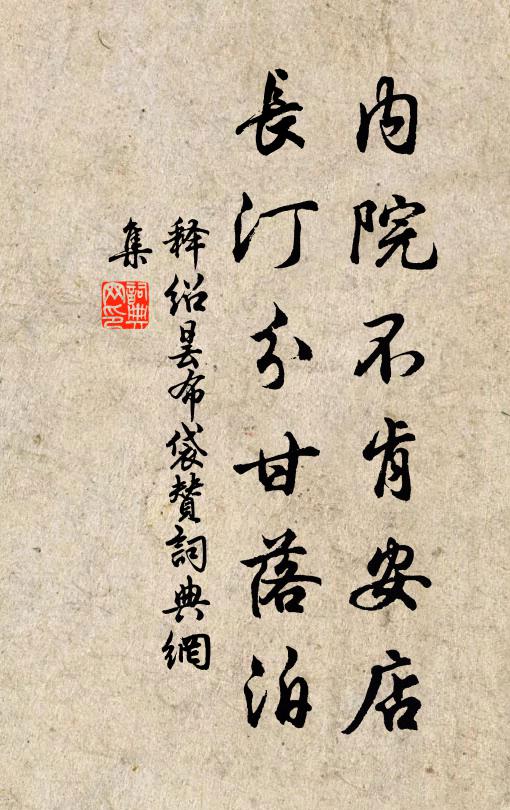 內院不肯安店
長汀分甘落泊
释绍昙布袋贊詞典網
集
詞典網印